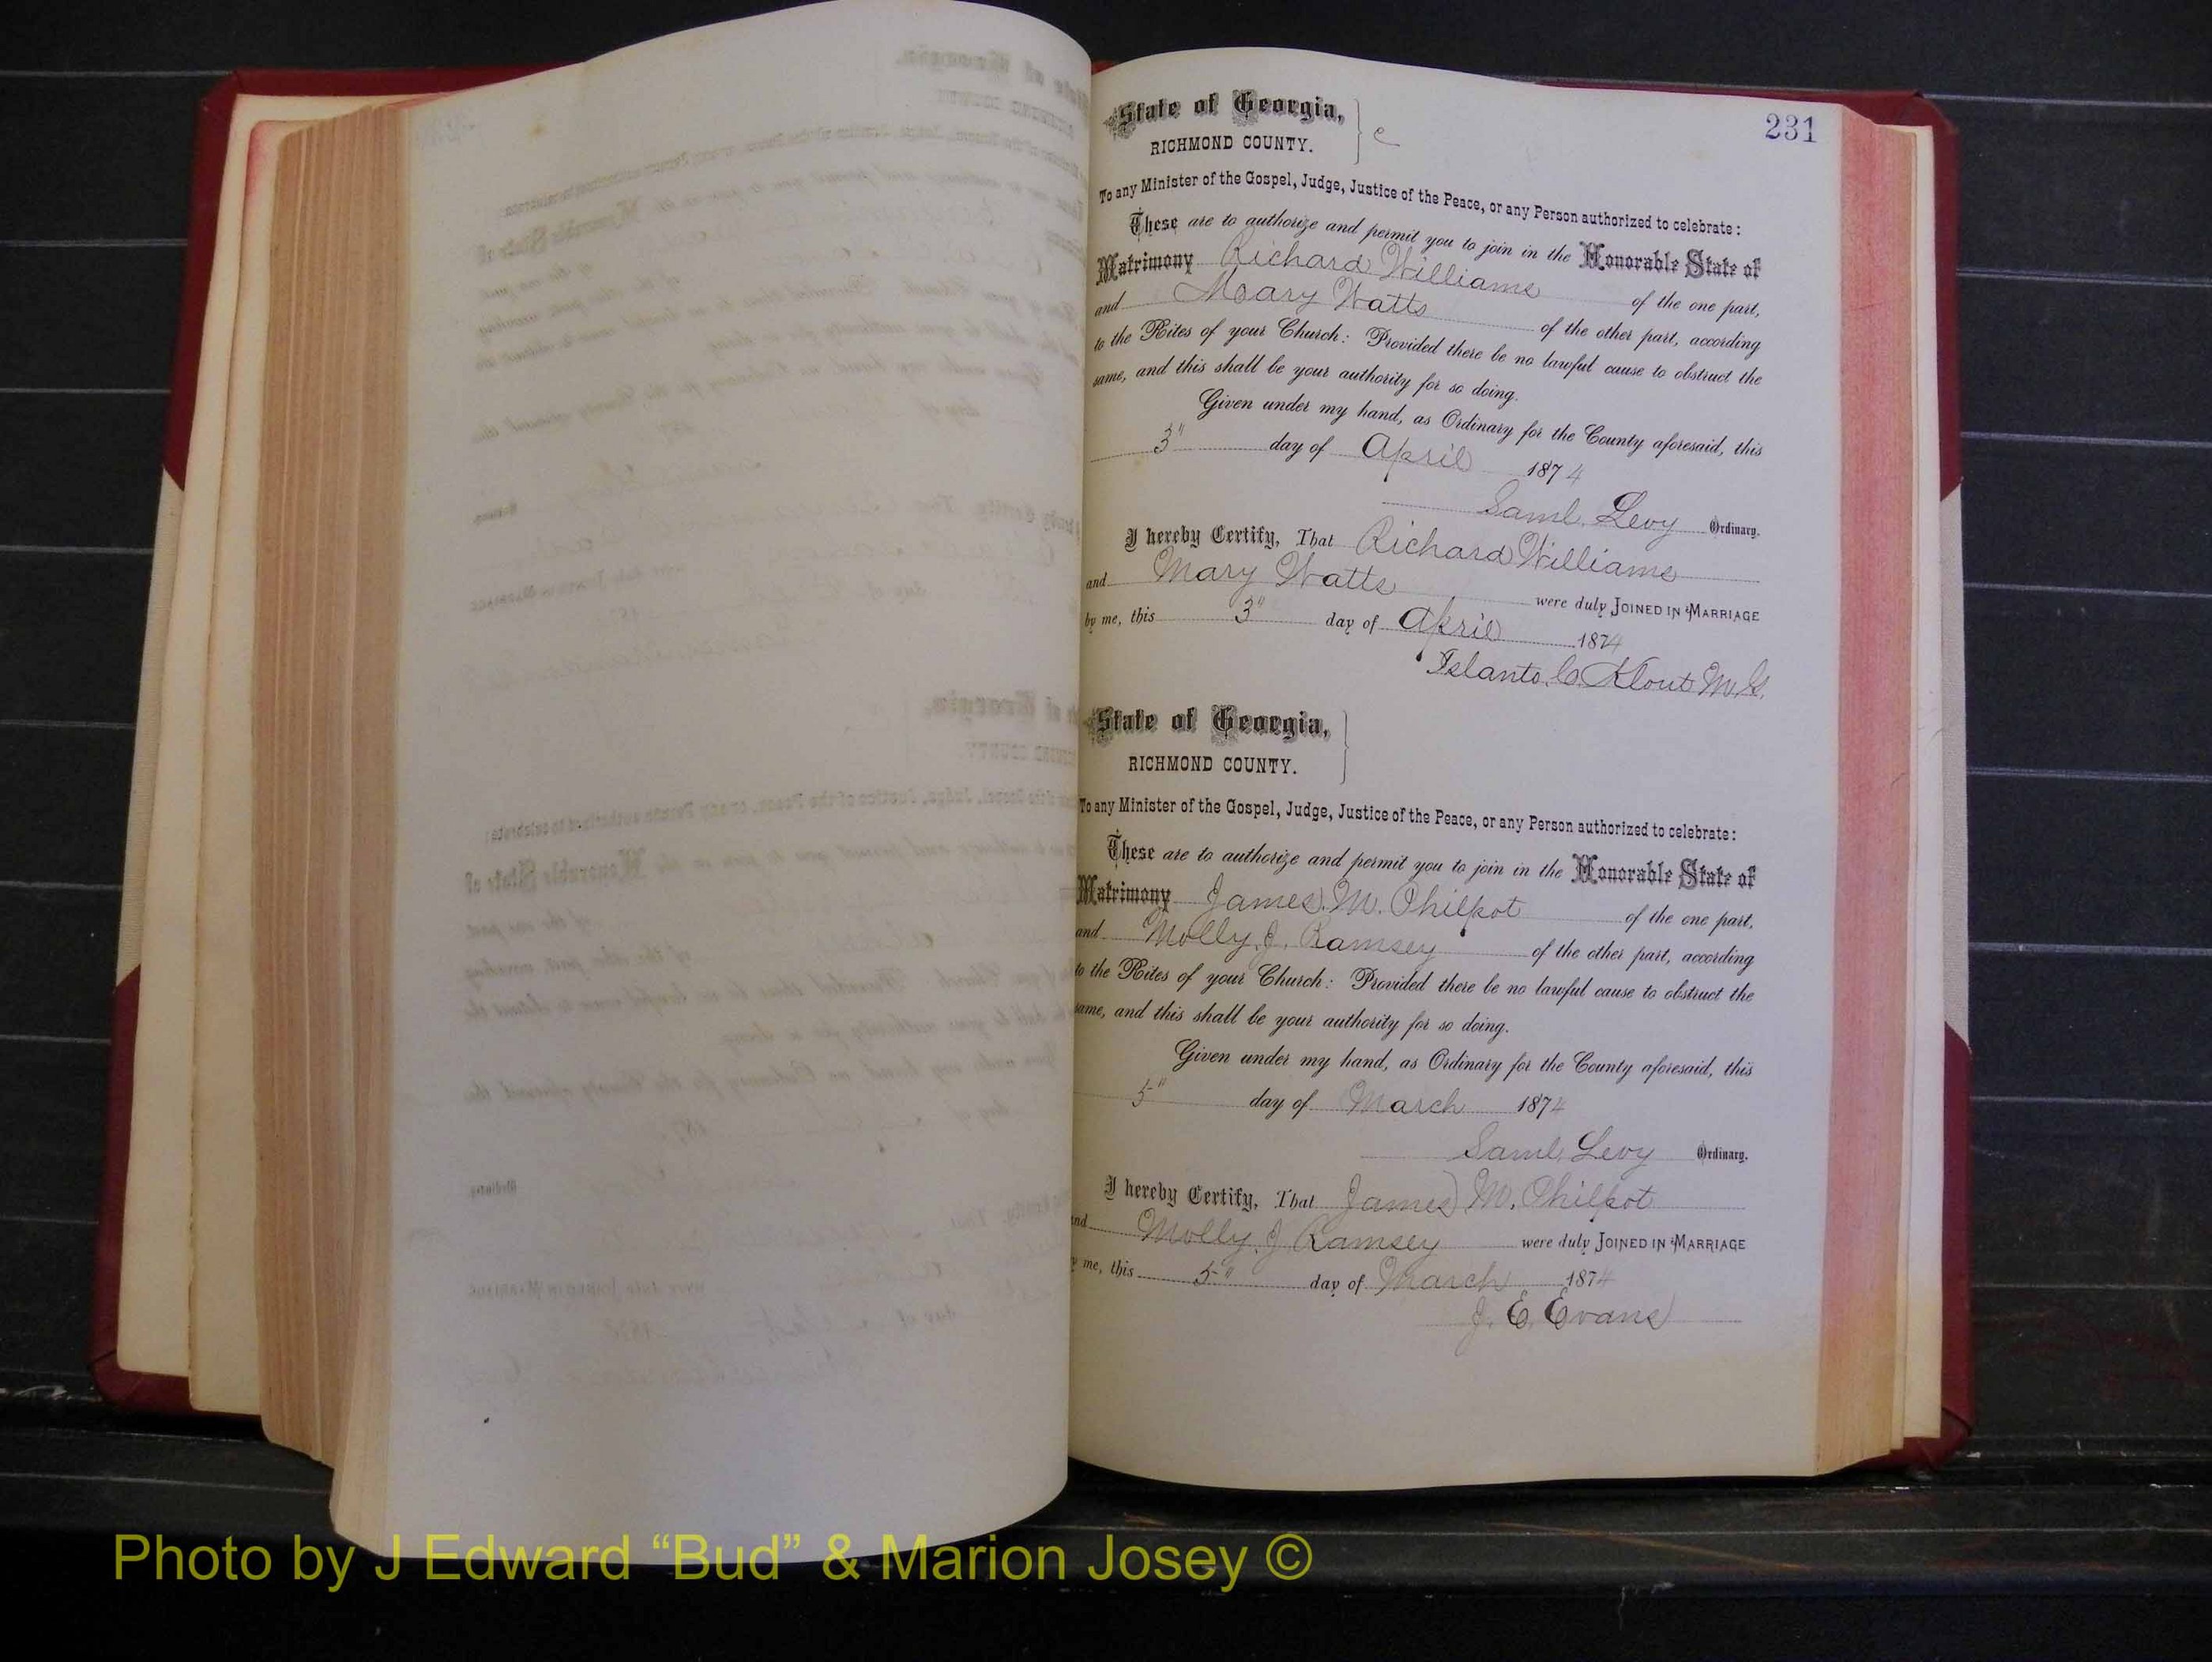 231
State of Georgia,
RICHMOND COUNTY. } c
To any Minister of the Gospel, Judge, Justice of the Peace, or any Person authorized to celebrate:
These are to authorize and permit you to join in the Honorable State of
Matrimony Richard Williams of the one part,
and Mary Watts of the other part, according
to the Rites of your Church: Provided there be no lawful cause to obstruct the
same, and this shall be your authority for so doing.
Given under my hand, as Ordinary for the County aforesaid, this
3" day of April 1874
Saml. Levy Ordinary.
I hereby Certify, That Richard Williams
and Mary Watts were duly JOINED IN MARRIAGE
by me, this 3" day of April 1874
M. G.
State of Georgia,
RICHMOND COUNTY. }
To any Minister of the Gospel, Judge, Justice of the Peace, or any Person authorized to celebrate:
These are to authorize and permit you to join in the Honorable State of
Matrimony James. M. Philpot of the one part,
and Molly. J. Ramsey of the other part, according
to the Rites of your Church: Provided there be no lawful cause to obstruct the
same, and this shall be your authority for so doing.
Given under my hand, as Ordinary for the County aforesaid, this
5" day of March 1874
Saml. Levy Ordinary.
I hereby Certify, That James M. Philpot
and Molly. J Ramsey were duly JOINED IN MARRIAGE
me, this 5" day of March 1874
J. E. Evans
Photo by J Edward “Bud” & Marion Josey ©